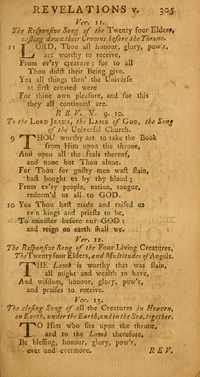 REVELATIONS v. 305
Ver. 11.
The Responsive Song of the Twenty four Elders,
casting down their Crowns before the Throne.
11 LORD, Thou all honour, glory, pow'r,
art worthy to receive,
From ev'ry creature; for to all
Thou didst their Being give.
Yea all things that the Universe
at first created were
For thine own pleasure, and for this
they all continued are.
REV. V. 9, 10.
To the LORD JESUS, the LAMB of GOD, the Song
of the Universal Church.
9 THOU worthy art to take the Book
from Him upon the throne,
And open all the seals thereof,
and none but Thou alone.
For Thou for guilty men wast slain,
hast bought us by thy blood;
From ev'ry people, nation, tongue,
redeem'd us all to GOD.
10 Yea Thou hast made and raised us
to'n kings and priests to be,
To minister before our GOD;
and reign on earth shall we.
Ver. 12.
The Responsive Song of the Four Living Creatures,
The Twenty four Elders, and Multitudes of Angels.
THE Lamb is worthy that was slain,
all might and wealth to have,
And wisdom, honour, glory, pow'r,
and praises to receive.
Ver. 13.
The closing Song of all the Creatures in Heaven,
on Earth, under the Earth, and in the Sea, together.
TO Him who sits upon the throne,
and to the Lamb therefore,
Be blessing, honour, glory, pow'r,
ever and evermore.
REV.